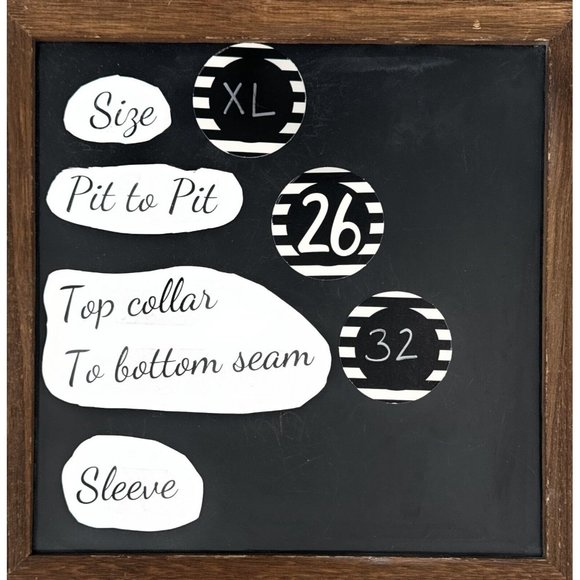 Size XL
Pit to Pit 26
Top collar
To bottom seam 32
Sleeve